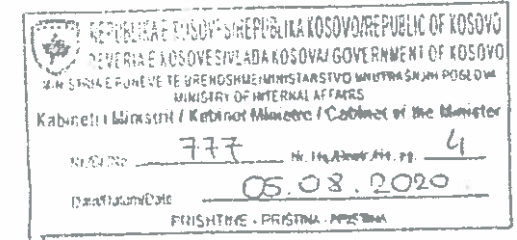 REPUBLIKA E KOSOVËS/REPUBLIKA KOSOVO/REPUBLIC OF KOSOVO
QEVERIA E KOSOVËS/VLADA KOSOVA/GOVERNMENT OF KOSOVO
MINISTRIA E PUNËVE TË BRENDSHME/MINISTARSTVO UNUTRAŠNJIH POSLOVA
MINISTRY OF INTERNAL AFFAIRS
Kabineti i Ministrit / Kabinet Ministra / Cabinet of the Minister
Nr./Br./No. 777 Nr. 4
Data/Datum/Date 05.08.2020
PRISHTINË - PRIŠTINA - PRISTINA